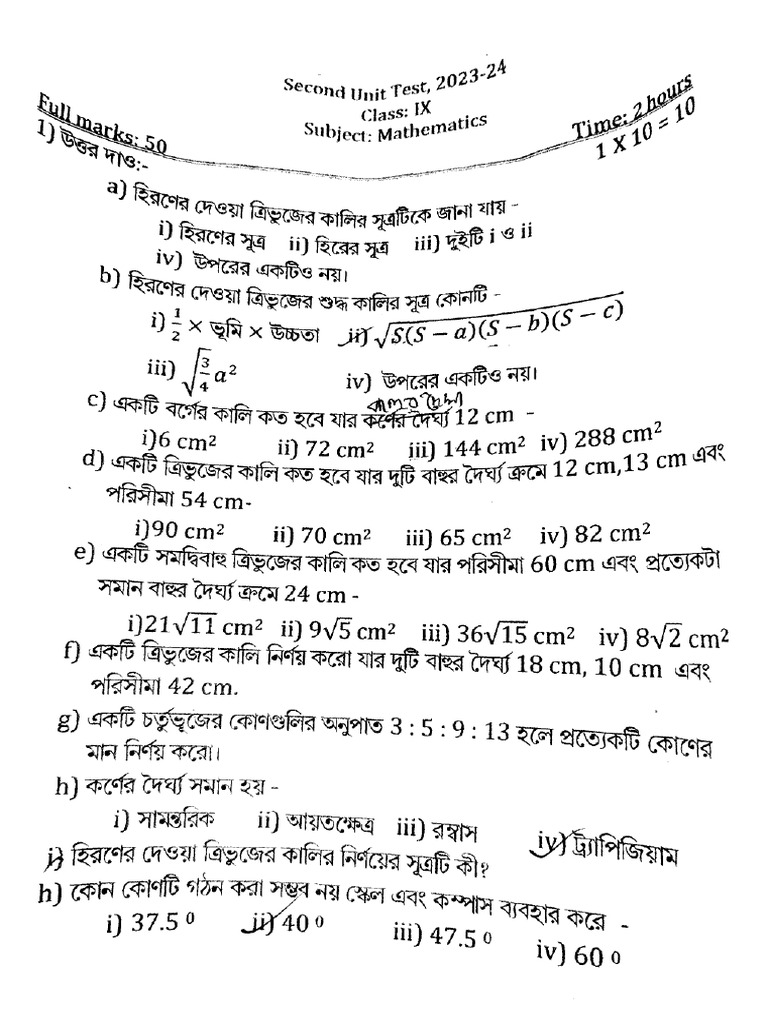 Second Unit Test, 2023-24
Class: IX
Subject: Mathematics
Full marks: 50 Time: 2 hours
1) উত্তর দাও:- 1 X 10 = 10
a) হিরণের দেওয়া ত্রিভুজের কালির সূত্রটিকে জানা যায় -
i) হিরণের সূত্র ii) হিরের সূত্র iii) দুইটি i ও ii
iv) উপরের একটিও নয়।
b) হিরণের দেওয়া ত্রিভুজের শুদ্ধ কালির সূত্র কোনটি -
i) 1/2 × ভূমি × উচ্চতা ii) √S(S − a)(S − b)(S − c)
iii) √3/4 a² iv) উপরের একটিও নয়।
c) একটি বর্গের কালি কত হবে যার কর্ণের দৈর্ঘ্য 12 cm -
i)6 cm² ii) 72 cm² iii) 144 cm² iv) 288 cm²
d) একটি ত্রিভুজের কালি কত হবে যার দুটি বাহুর দৈর্ঘ্য ক্রমে 12 cm,13 cm এবং
পরিসীমা 54 cm-
i)90 cm² ii) 70 cm² iii) 65 cm² iv) 82 cm²
e) একটি সমদ্বিবাহু ত্রিভুজের কালি কত হবে যার পরিসীমা 60 cm এবং প্রত্যেকটা
সমান বাহুর দৈর্ঘ্য ক্রমে 24 cm -
i)21√11 cm² ii) 9√5 cm² iii) 36√15 cm² iv) 8√2 cm²
f) একটি ত্রিভুজের কালি নির্ণয় করো যার দুটি বাহুর দৈর্ঘ্য 18 cm, 10 cm এবং
পরিসীমা 42 cm.
g) একটি চর্তুভূজের কোণগুলির অনুপাত 3 : 5 : 9 : 13 হলে প্রত্যেকটি কোণের
মান নির্ণয় করো।
h) কর্ণের দৈর্ঘ্য সমান হয় -
i) সামন্তরিক ii) আয়তক্ষেত্র iii) রম্বাস iv) ট্র্যাপিজিয়াম
i) হিরণের দেওয়া ত্রিভুজের কালির নির্ণয়ের সূত্রটি কী?
h) কোন কোণটি গঠন করা সম্ভব নয় স্কেল এবং কম্পাস ব্যবহার করে -
i) 37.5 ⁰ ii) 40 ⁰ iii) 47.5 ⁰ iv) 60 ⁰